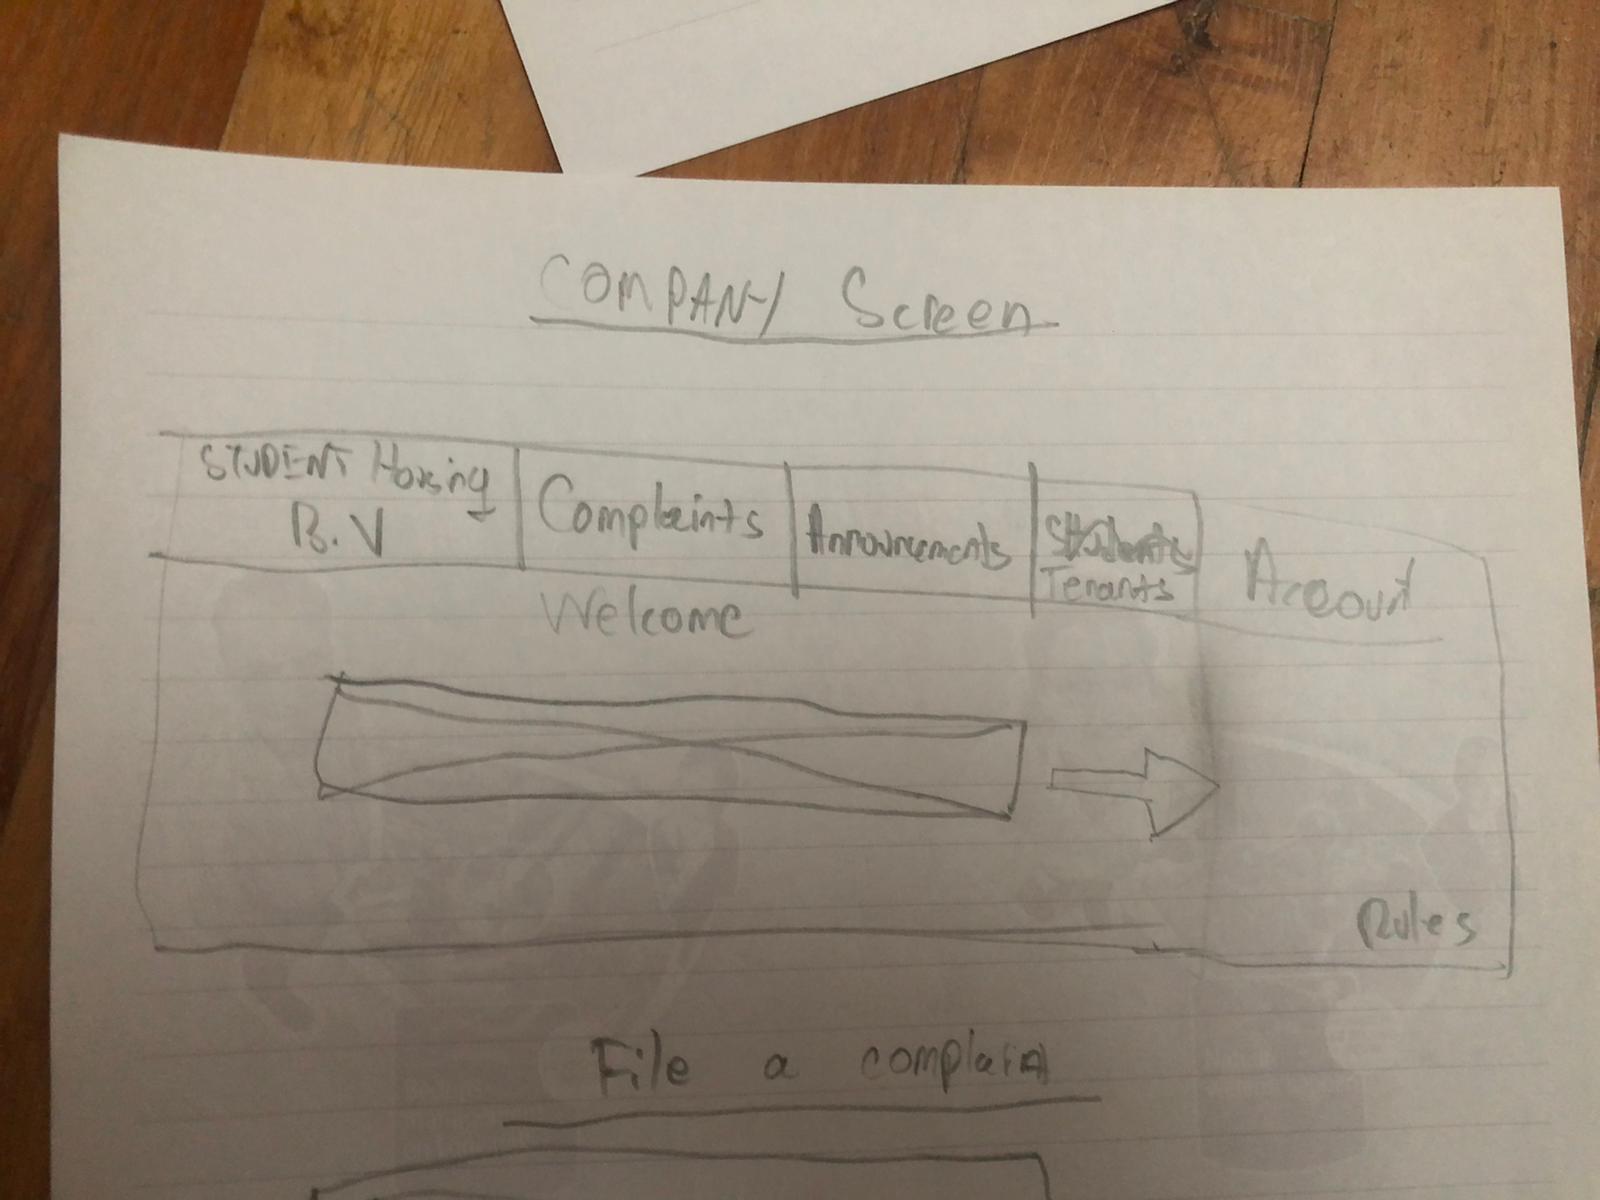 COMPANY Screen
STUDENT Housing
B.V
Complaints
Announcements
Students
Tenants
Account
Welcome
Rules
File a complaint